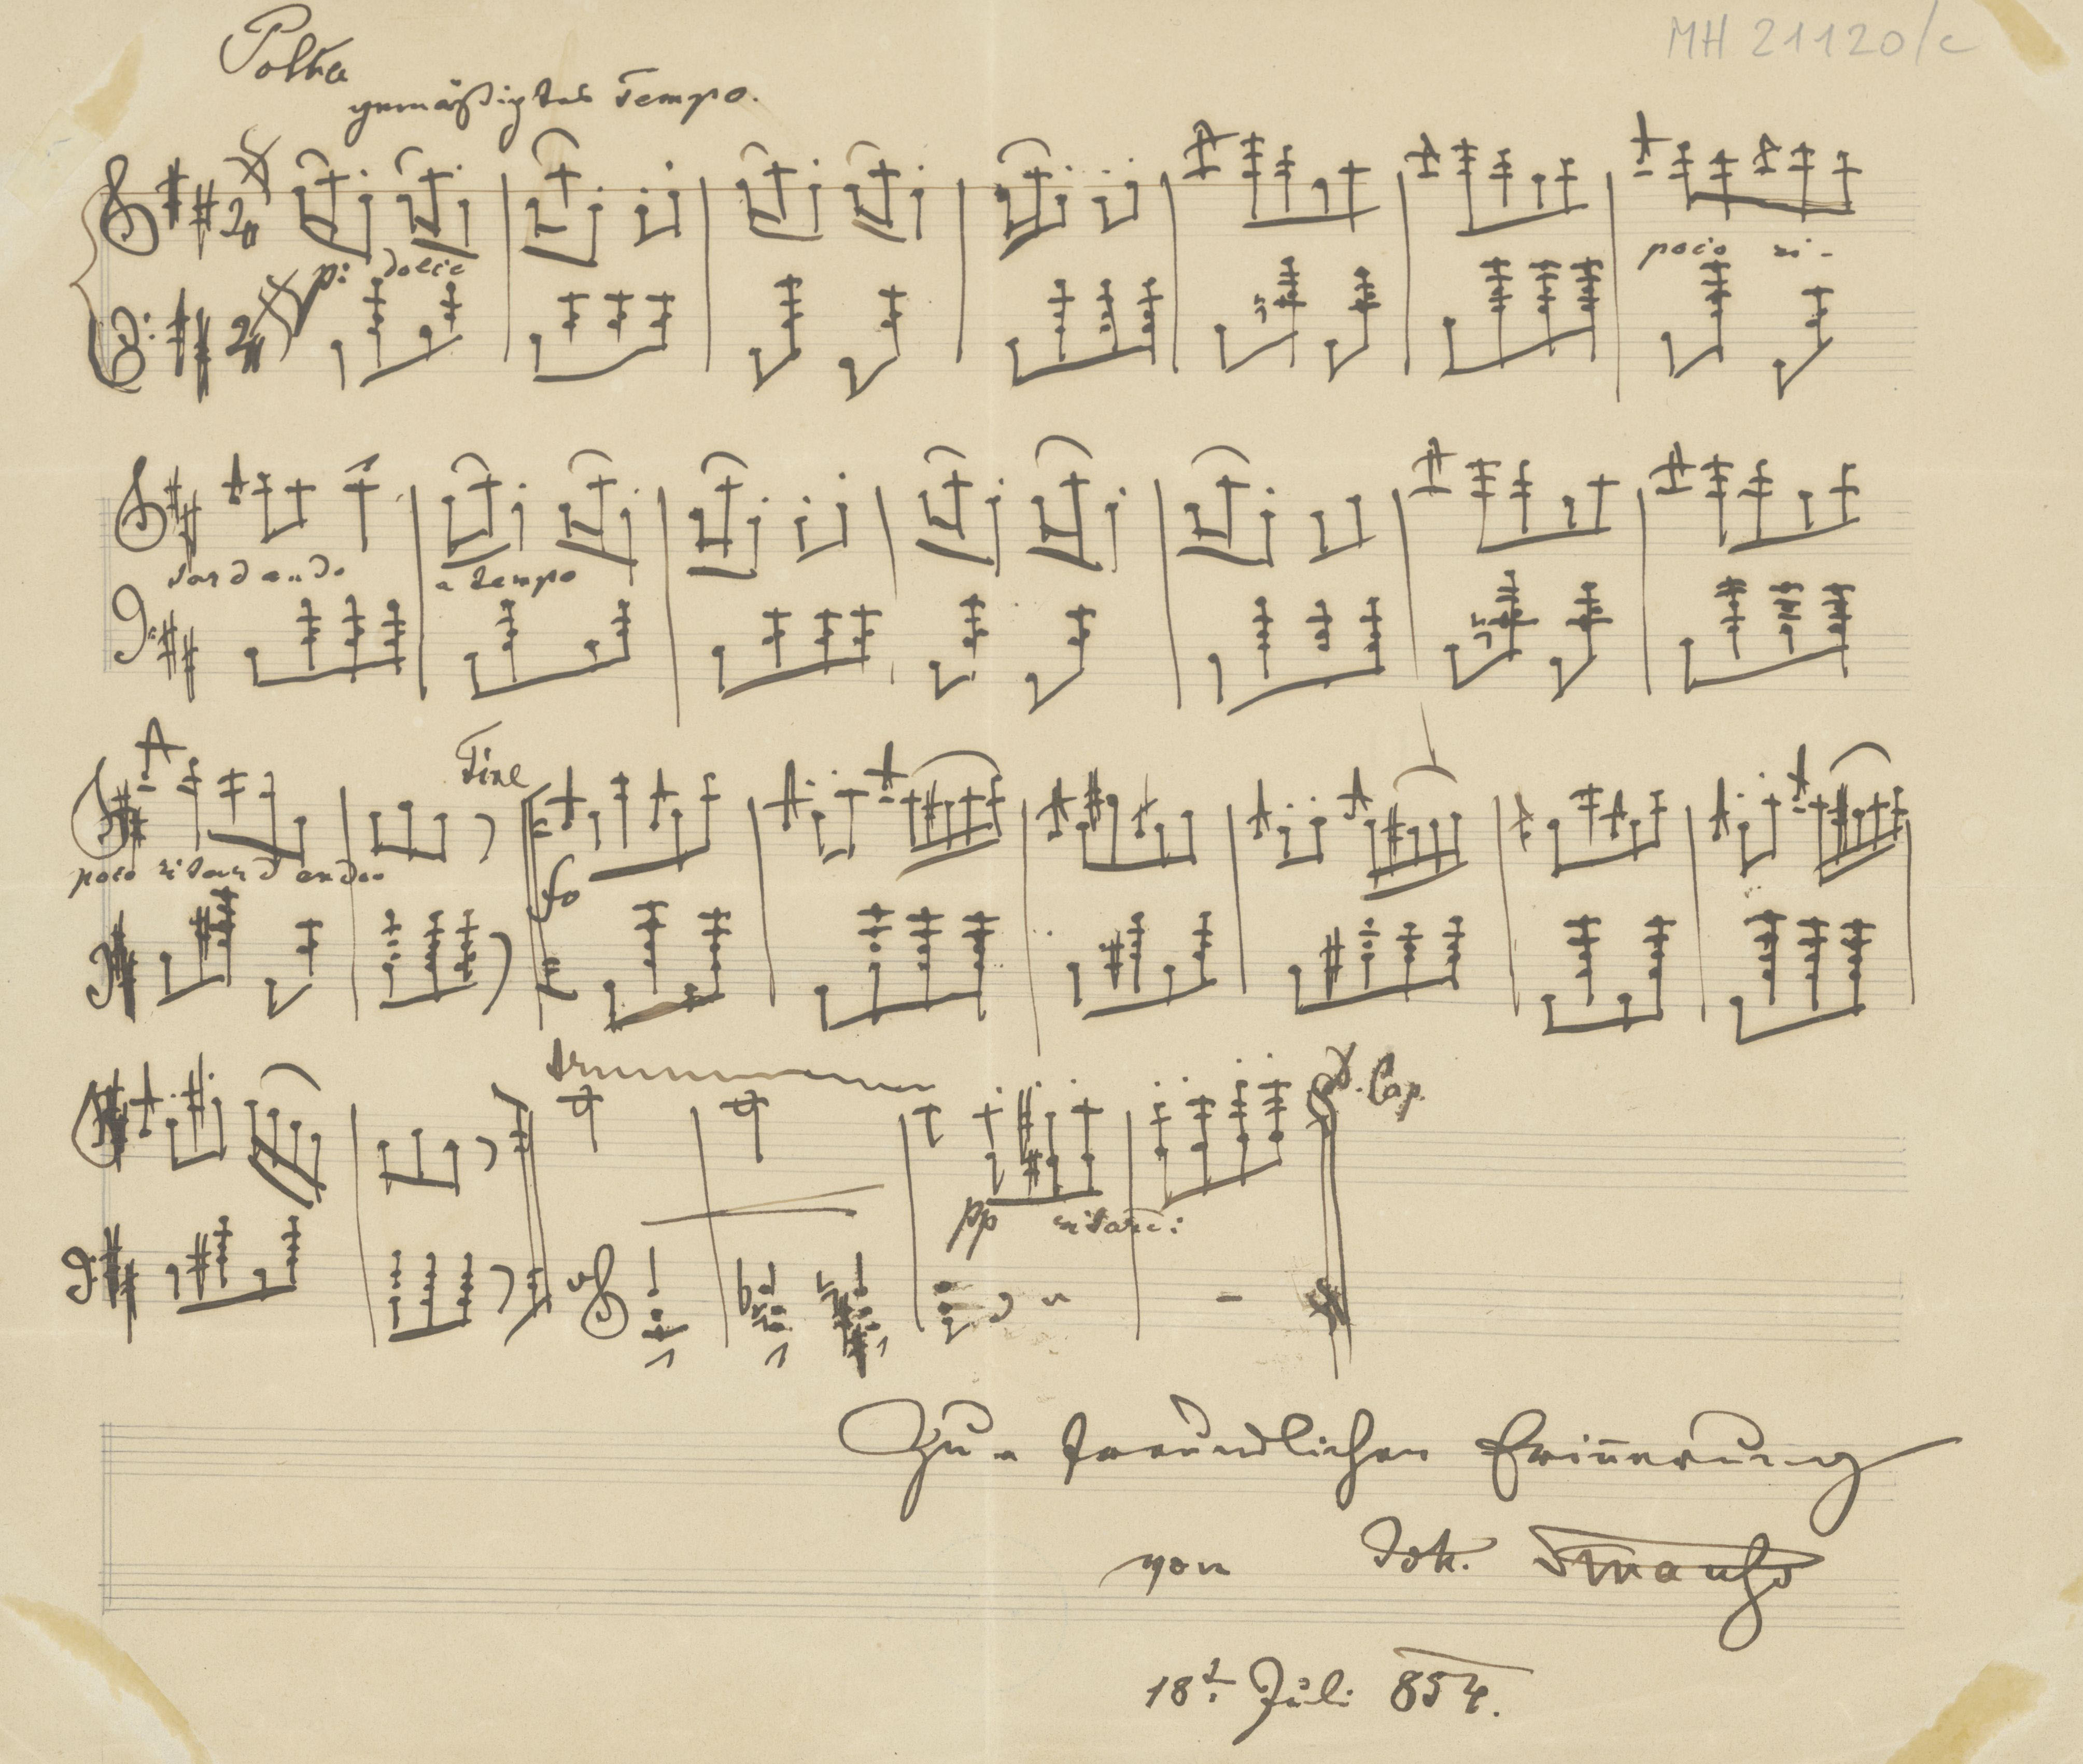 MH 21120/c
Polka
gemäßigtes Tempo.
p: dolce
poco ri-
tardando a tempo
Fine
poco ritardando
fo
tr
D. Cap.
pp ritard:
Zur freundlichen Erinnerung
von Joh. Strauß
18t. Juli 854.